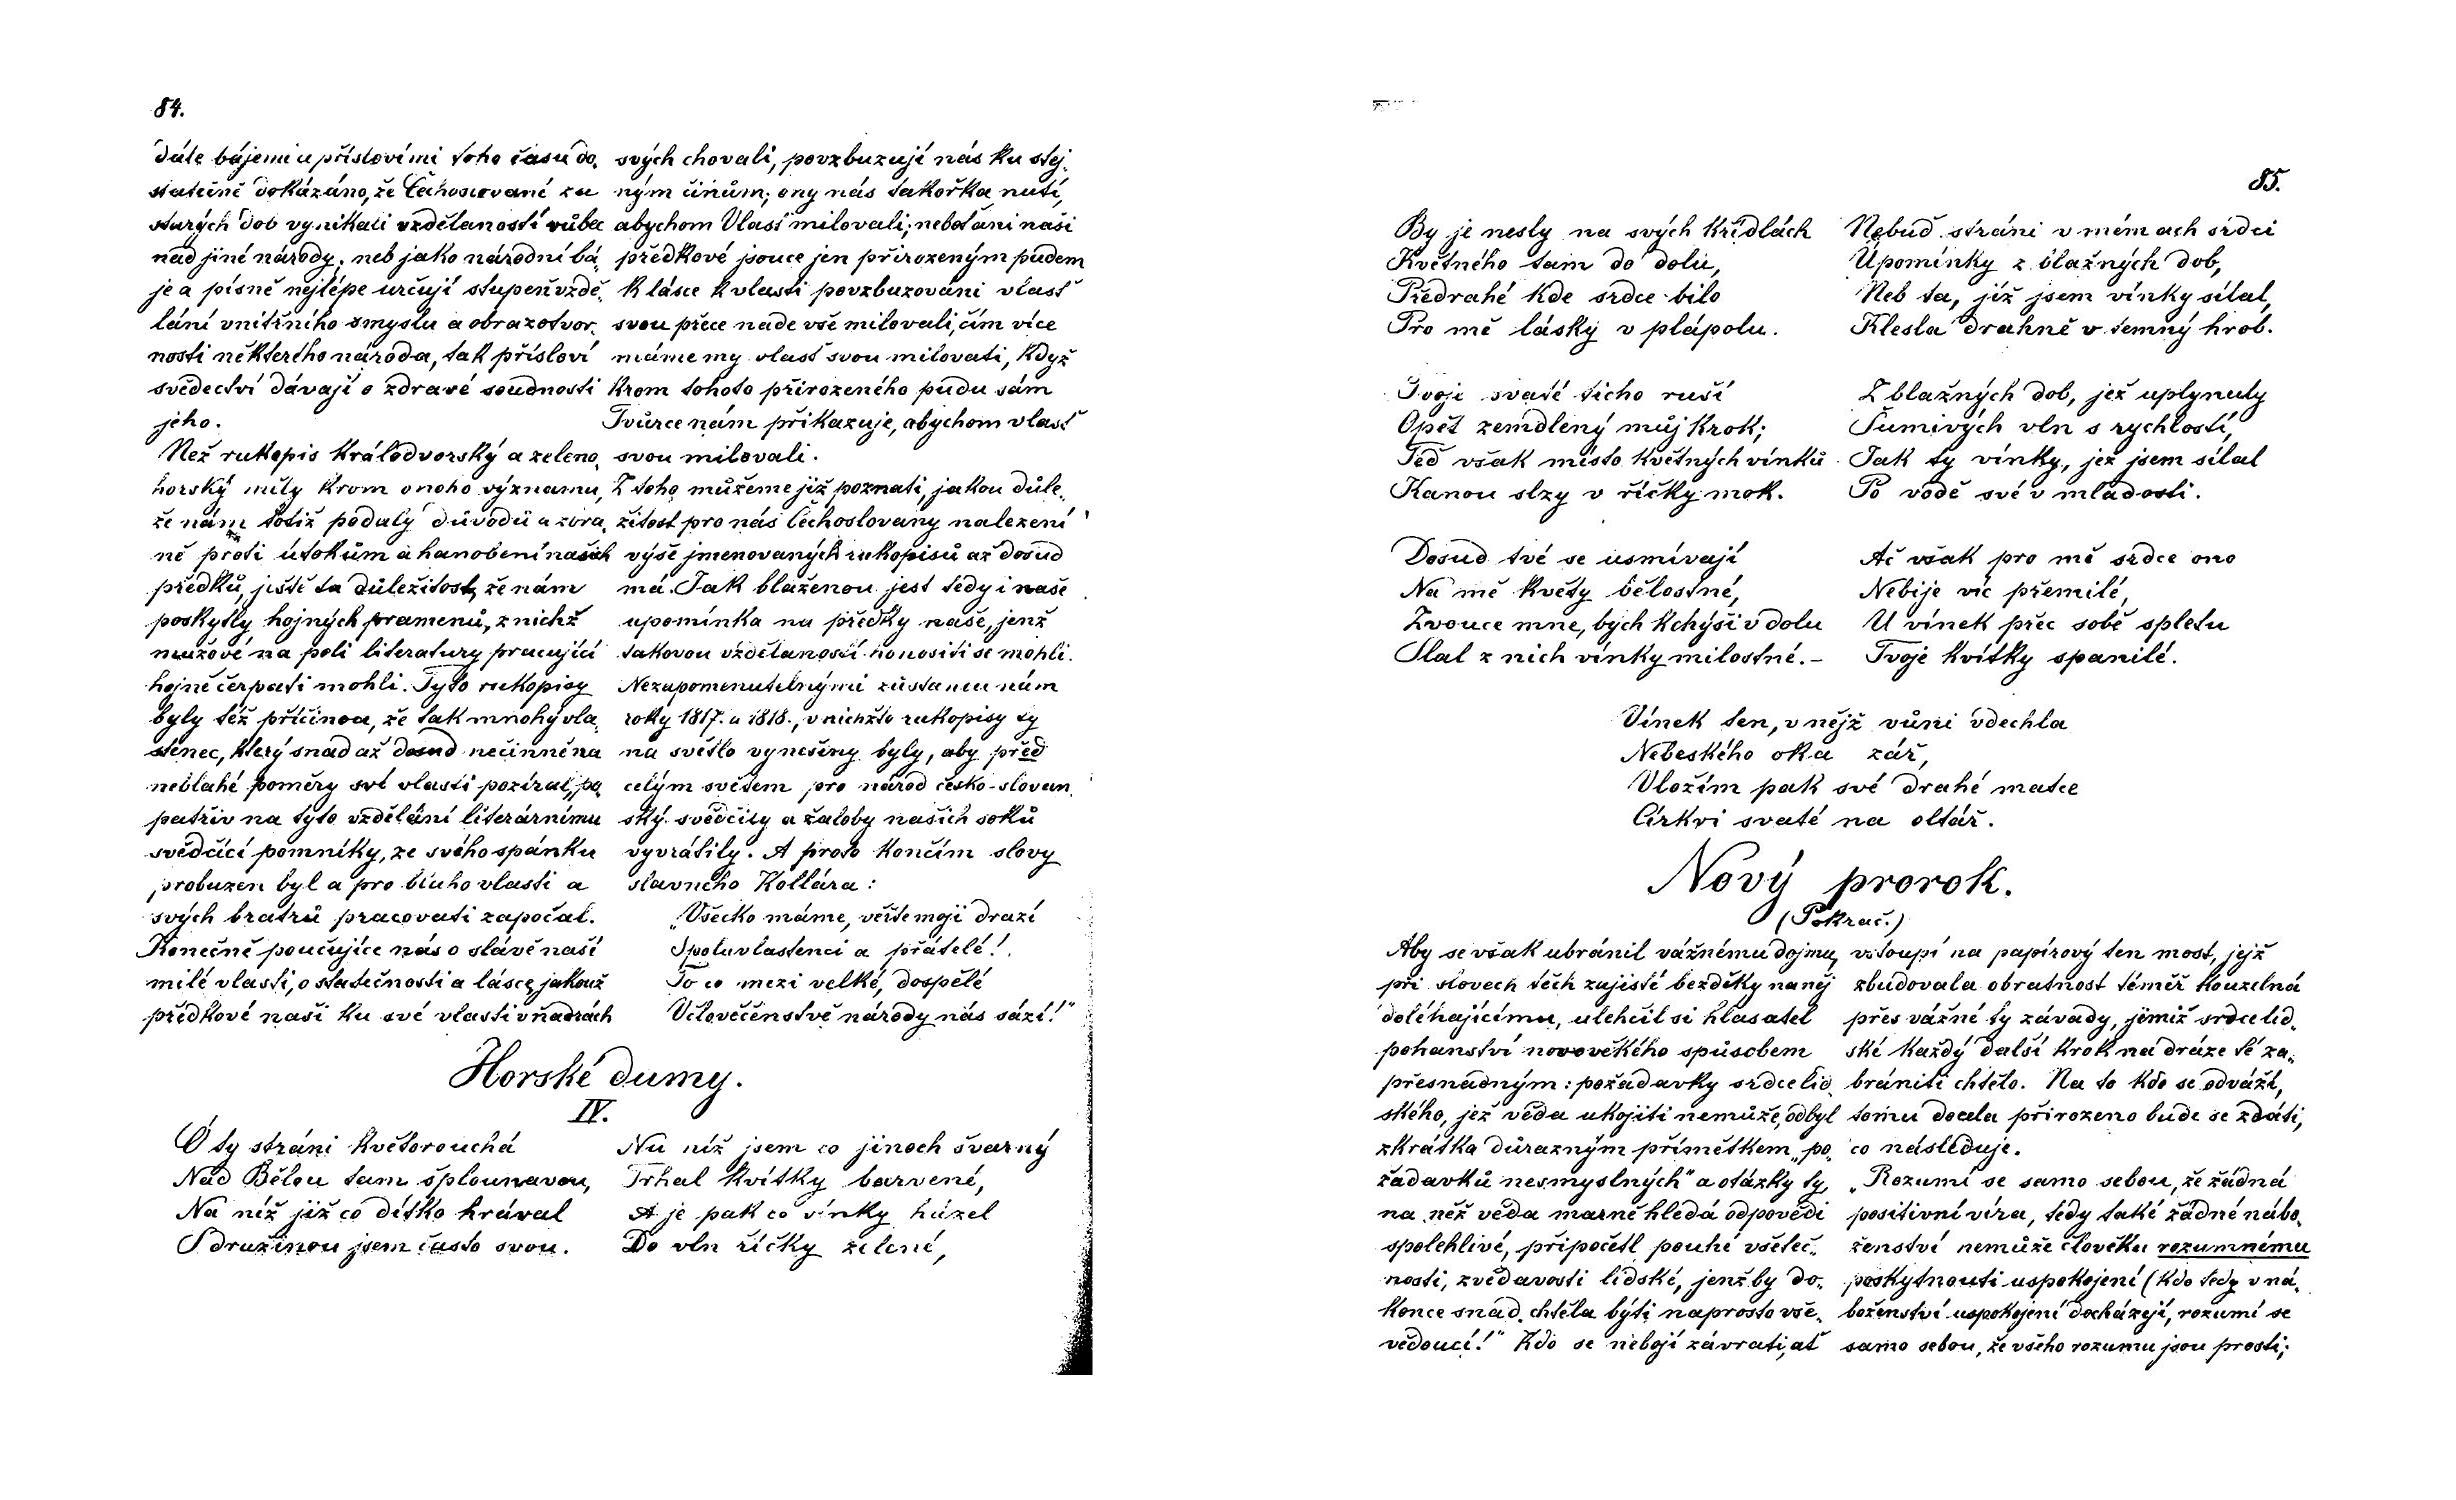 84.
dále bájemi a příslovími toho času do-
statečně dokázáno, že Čechoslované za
starých dob vynikali vzdělaností vůbec
nad jiné národy; neb jako národní bá-
je a písně nejlépe určují stupeň vzdě-
lání vnitřního smyslu a obrazotvor-
nosti některého národa, tak přísloví
svědectví dávají o zdravé soudnosti
jeho.
Než rukopis králodvorský a zeleno-
horský měly krom onoho významu,
že nám totiž podaly důvodů a zbra-
ně proti útokům a hanobení našich
předků, ještě ta důležitost, že nám
poskytly hojných pramenů, z nichž
mužové na poli literatury pracující
hojně čerpati mohli. Tyto rukopisy
byly též příčinou, že tak mnohý vla-
stenec, který snad až dosud nečinně na
neblahé poměry své vlasti pozíral, po-
patřiv na tyto vzdělání literárnímu
svědčící pomníky, ze svého spánku
probuzen byl a pro blaho vlasti a
svých bratrů pracovati započal.
Konečně poučujíce nás o slávě naší
milé vlasti, o statečnosti a lásce, jakouž
předkové naši ku své vlasti v ňadrách
svých chovali, povzbuzují nás ku stej-
ným činům; ony nás takořka nutí,
abychom Vlasť milovali; neboť ani naši
předkové jsouce jen přirozeným pudem
k lásce k vlasti povzbuzováni vlasť
svou přece nade vše milovali, čím více
máme my vlasť svou milovati, když
krom tohoto přirozeného pudu sám
Tvůrce nám přikazuje, abychom vlasť
svou milovali.
Z toho můžeme již poznati, jakou důle-
žitost pro nás Čechoslovany nalezení
výše jmenovaných rukopisů až dosud
má. Jak blaženou jest tedy i naše
upomínka na předky naše, jenž
takovou vzdělaností honositi se mohli.
Nezapomenutelnými zůstanou nám
roky 1817. a 1818., v nichžto rukopisy ty
na světlo vynešeny byly, aby před
celým světem pro národ česko-slovan-
ský svědčily a žaloby našich soků
vyvrátily. A proto končím slovy
slavného Kollára:
„Všecko máme, věřte moji drazí
Spoluvlastenci a přátelé!
To co mezi velké, dospělé
Včlověčenstvě národy nás sází!"
Horské dumy.
IV.
Ó ty stráni květorouchá
Nad Bělou tam šplounavou,
Na níž již co dítko hrával
S družinou jsem často svou.
Na níž jsem co jinoch švarný
Trhal kvítky barvené,
A je pak co vínky házel
Do vln říčky zelené,
85.
By je nesly na svých křídlách
Květného tam do dolu,
Předrahé kde srdce bilo
Pro mě lásky v plápolu.
Tvoje svaté ticho ruší
Opět zemdlený můj krok;
Teď však místo květných vínků
Kanou slzy v říčky mok.
Dosud tvé se usmívají
Na mě květy bělostné,
Zvouce mne, bych kchýši v dolu
Slal z nich vínky milostné.–
Nebuď stráni v mém ach srdci
Upomínky z blažných dob,
Neb ta, jíž jsem vínky sílal,
Klesla drahně v temný hrob.
Z blažných dob, jež uplynuly
Šumivých vln s rychlostí,
Jak ty vínky, jež jsem sílal
Po vodě své v mladosti.
Ač však pro mě srdce ono
Nebije víc přemilé,
U vínek přec sobě spletu
Tvoje kvítky spanilé.
Vínek ten, v nějž vůni vdechla
Nebeského oka zář,
Vložím pak své drahé matce
Církvi svaté na oltář.
Nový prorok.
(Pokrač.)
Aby se však ubránil vážnému dojmu,
při slovech těch zajisté bezděky naněj
doléhajícímu, ulehčil si hlasatel
pohanství novověkého spůsobem
přesnadným: požadavky srdce lid-
ského, jež věda ukojiti nemůže, odbyl
zkrátka důrazným přímětkem „po-
žadavků nesmyslných" a otázky ty,
na něž věda marně hledá odpovědi
spolehlivé, připočetl pouhé všeteč-
nosti, zvědavosti lidské, jenž by do-
konce snad chtěla býti naprosto vše-
vědoucí!" Kdo se nebojí závrati, ať
vstoupí na papírový ten most, jejž
zbudovala obratnost téměř kouzelná
přes vážné ty závady, jimiž srdce lid-
ské každý další krok na dráze té za-
brániti chtělo. Na to kdo se odváží,
tomu docela přirozeno bude se zdáti,
co následuje.
„Rozumí se samo sebou, že žádná
positivní víra, tedy také žádné nábo-
ženství nemůže člověku rozumnému
poskytnouti uspokojení (kdo tedy v ná-
boženství uspokojení docházejí, rozumí se
samo sebou, že všeho rozumu jsou prosti;